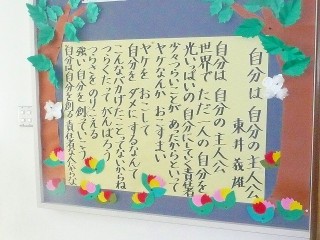 自分は 自分の主人公
東井義雄
自分は 自分の主人公
世界で ただ一人の自分を
光いっぱいの 自分にしていく責任者
少々つらいことが あったからといって
ヤケなんか おこすまい
ヤケを おこして
自分を ダメにするなんて
こんなバカげたことってないからね
つらくたって がんばろう
つらさを のりこえる
強い自分を 創っていこう
自分は自分を創る 責任者なんだからな